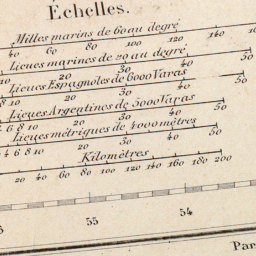 Échelles.
Milles marins de 60 au degré
40 60 80 100 120 140
Lieues marines de 20 au degré
10 20 30 40 50
Lieues Espagnoles de 6000 Varas
8 10 20 30 40 50
Lieues Argentines de 5000 Varas
4 6 8 10 20 30 40 50
Lieues métriques de 4000 mètres
4 6 8 10 20 30 40 50
Kilomètres
20 40 60 80 100 120 140 160 180 200
55 54
Par